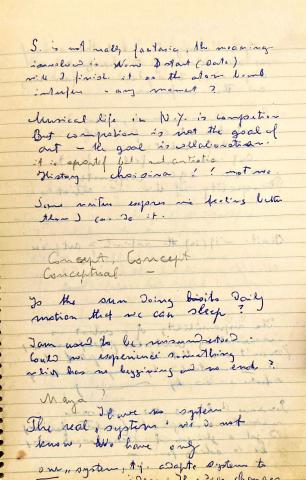 S. is not really fantasia, the meaning
involved is Now I start (Date)
will I finish it or the atom bomb
interfere - any moment ?
Musical life in N.Y. is competion
But compotion is not the goal of
art - the goal is collaboration.
it is sport not artistic
History - choisina ! ! not me.
Some writer express my feeling better
than I can do it.
Concept, Concept
Conceptual -
Is the sun doing his daily
motion that we can sleep ?
I am used to be misunderstood.
Could we experience something
which has no beggining and no end ?
Maya ?
I have no system
The real „system" we do not
know, We have only
our „system, adapte systems to
changes